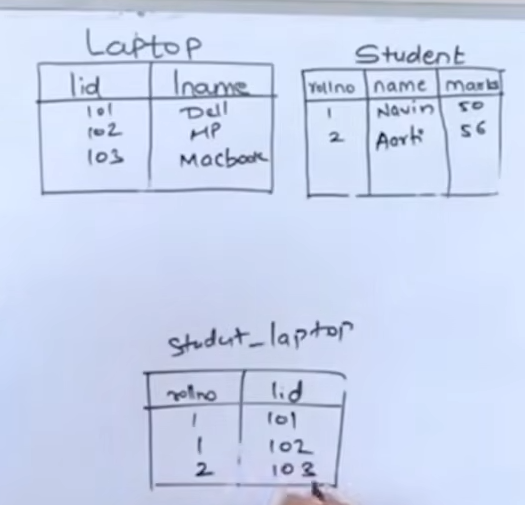 Laptop
lid lname
101 Dell
102 HP
103 Macbook
Student
rollno name marks
1 Navin 50
2 Aarti 56
Studut_laptop
rollno lid
1 101
1 102
2 103